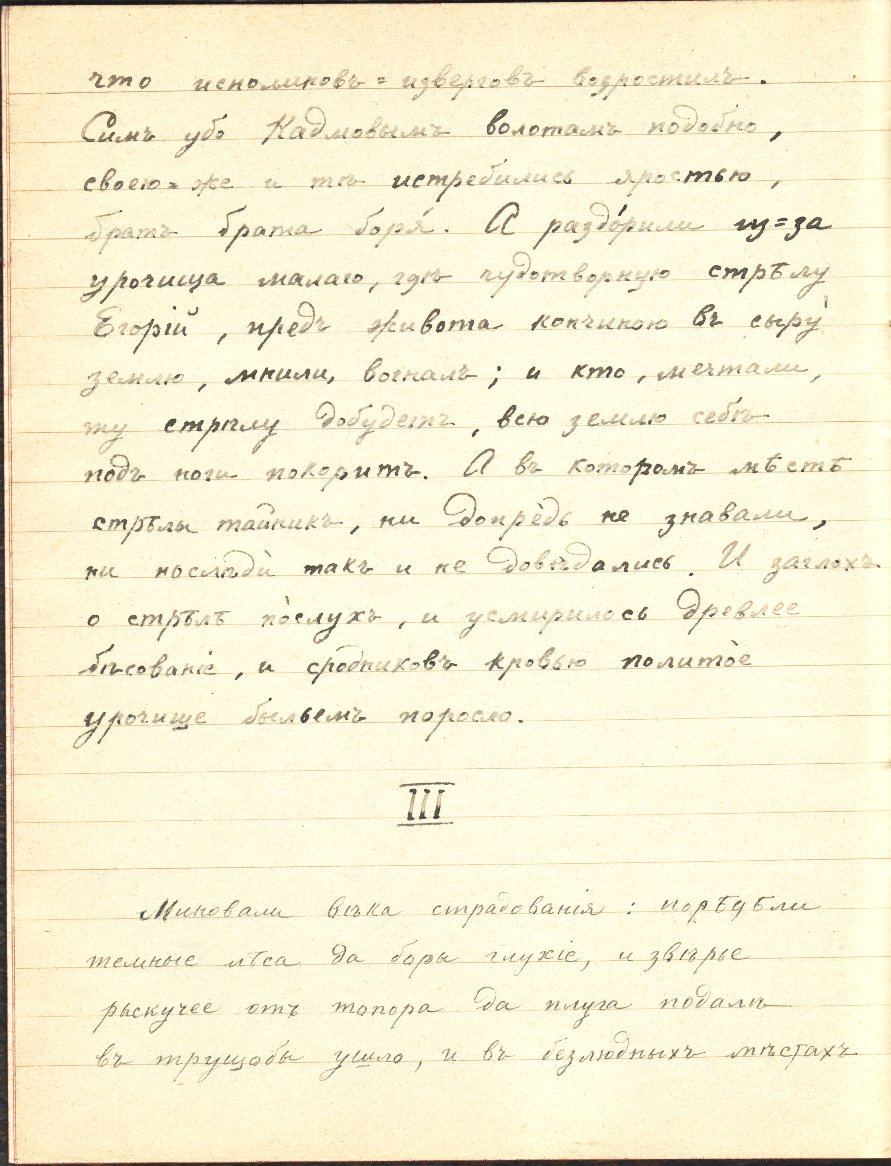 что исполиновъ=изверговъ возростилъ.
Симъ убо Кадмовымъ волотамъ подобно,
своею=же и тѣ истребились яростью,
братъ брата боря́. А раздо́рили из=за
урочища малаго, гдѣ чудотворную стрѣлу
Егорій, предъ живота кончиною въ сыру́
землю, мнили, вогналъ; и кто, мечтали,
ту стрѣлу добудетъ, всю землю себѣ
подъ ноги покоритъ. А въ которомъ мѣстѣ
стрѣлы тайникъ, ни допре́дь не знавали,
ни послѣди́ такъ и не довѣдались. И заглохъ
о стрѣлѣ по́слухъ, и усмирилось древлее
бѣсованіе, и сро́дниковъ кровью полито́е
урочище быльемъ поросло.
III
Миновали вѣка страдованія: порѣдѣли
темные лѣса да боры глухіе, и звѣрье
рыскучее отъ топора да плуга подалѣ
въ трущобы ушло, и въ безлюдныхъ мѣстахъ